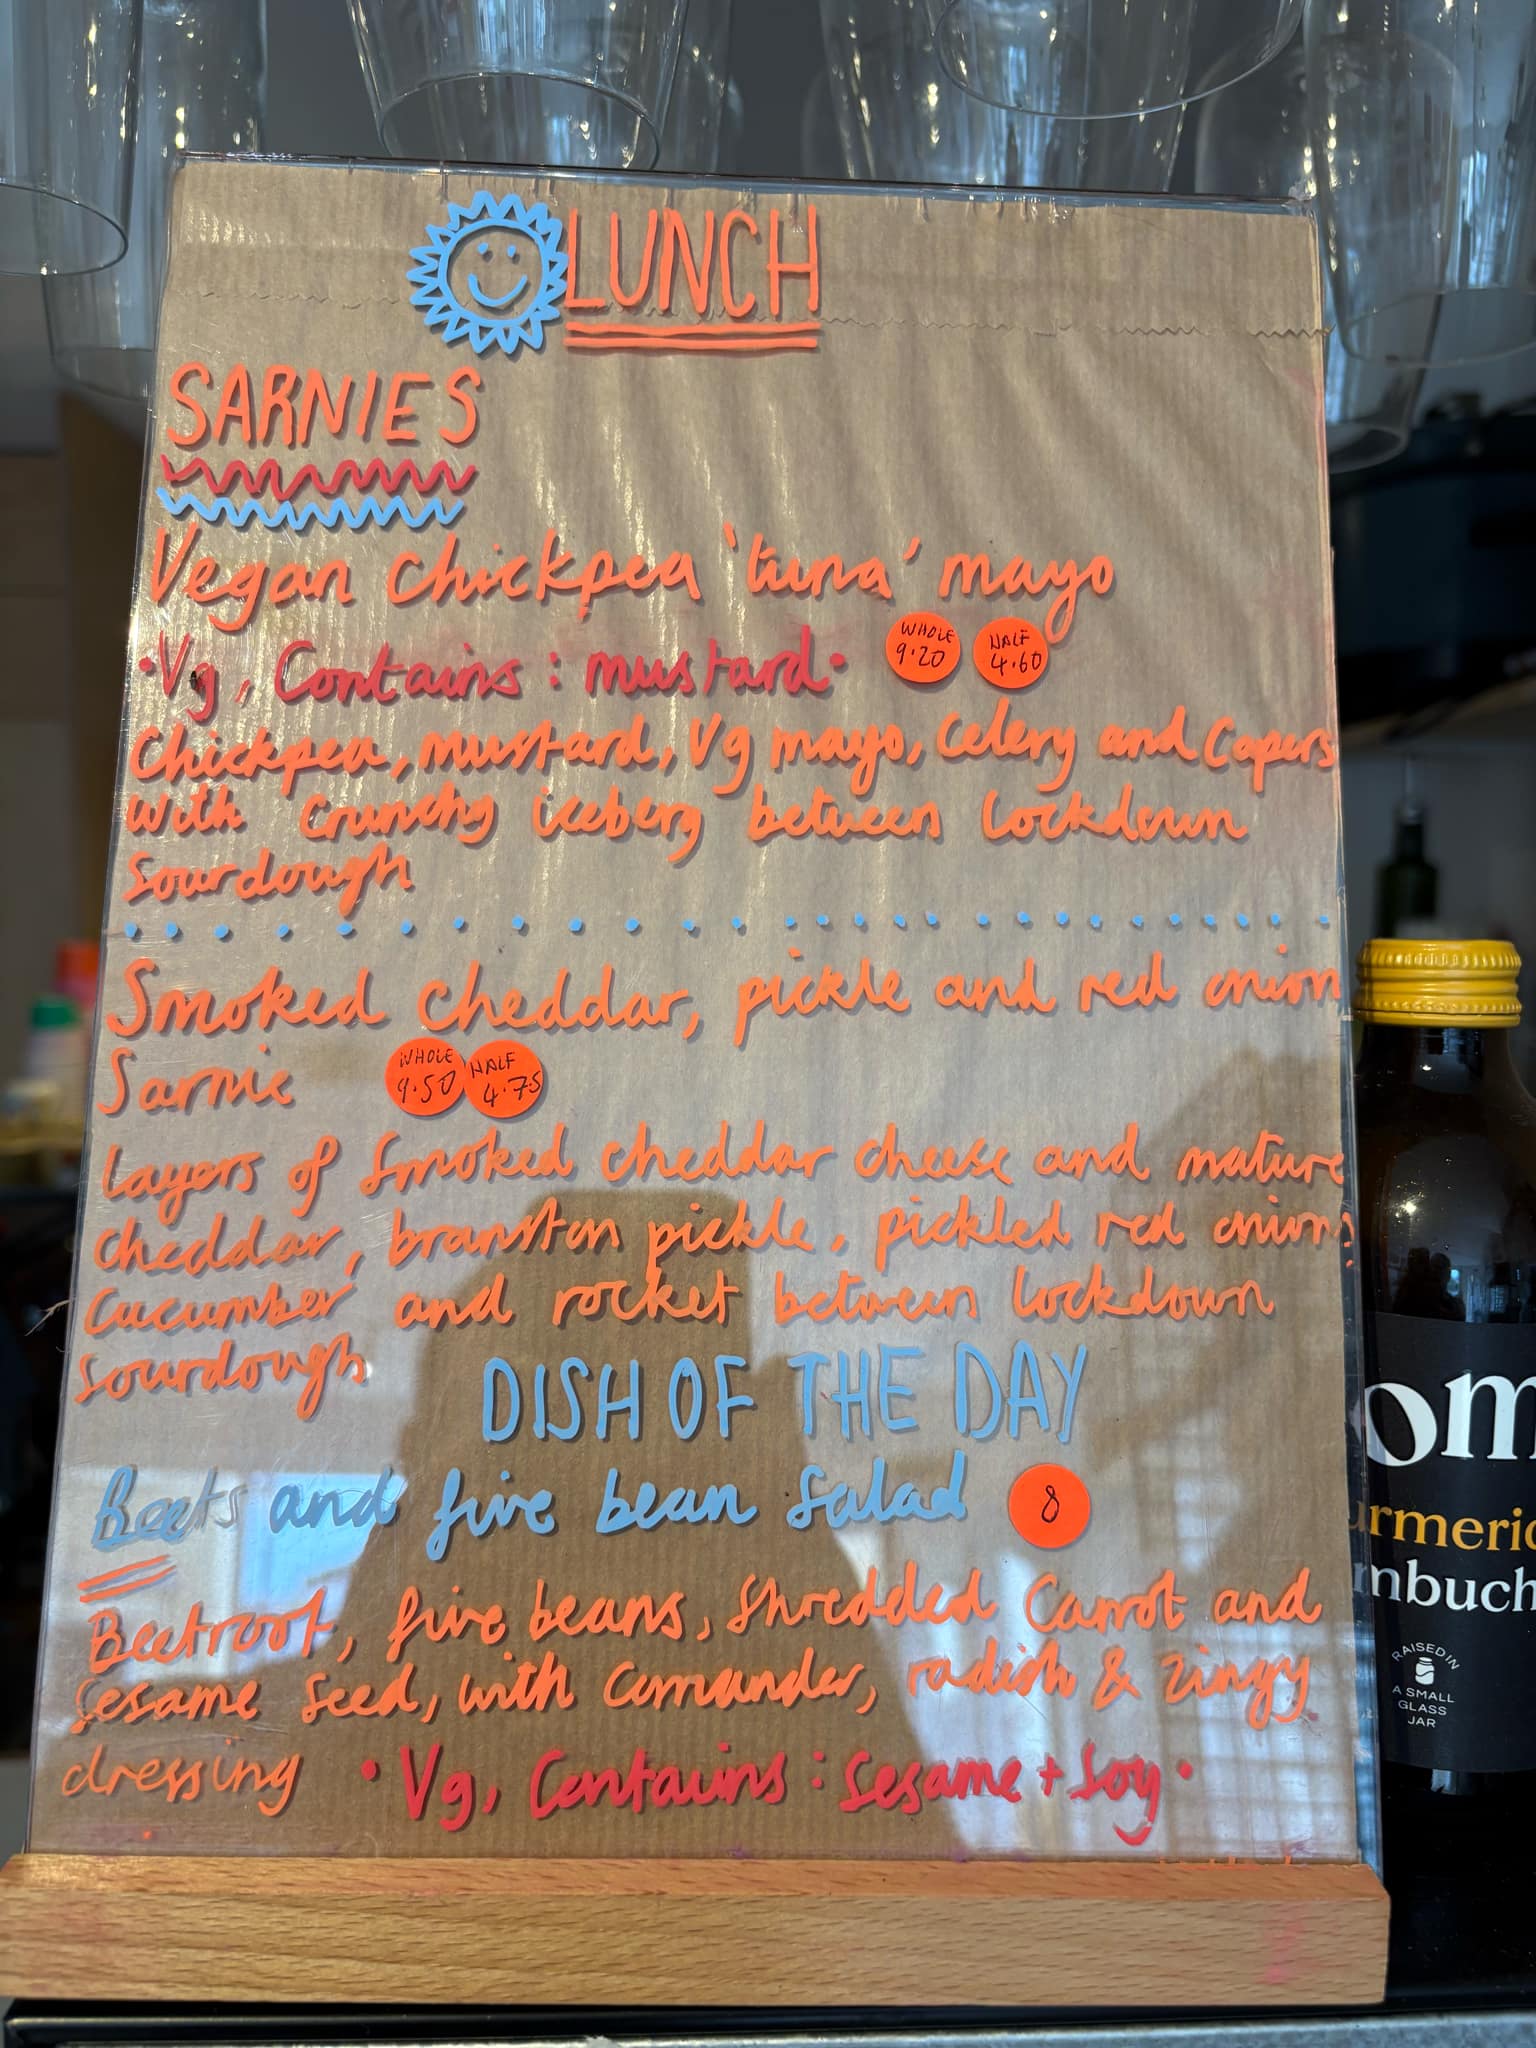 LUNCH
SARNIES
Vegan Chickpea 'tuna' mayo
•Vg, Contains: mustard•
WHOLE
9.20
HALF
4.60
Chickpea, mustard, Vg mayo, Celery and Capers
with Crunchy iceberg between lockdown
Sourdough
Smoked Cheddar, pickle and red onion
Sarnie
WHOLE
9.50
HALF
4.75
Layers of Smoked cheddar cheese and mature
Cheddar, branston pickle, pickled red onions
Cucumber and rocket between lockdown
Sourdough
DISH OF THE DAY
Beets and five bean Salad
8
Beetroot, five beans, Shredded Carrot and
Sesame Seed, with Corriander, radish & Zingy
dressing
•Vg, Contains: Sesame + Soy•
om
urmeric
mbuch
RAISED IN
A SMALL
GLASS
JAR